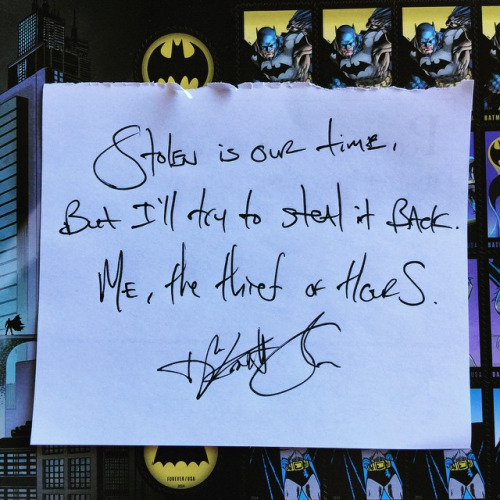 Stolen is our time,
But I'll try to steal it back.
Me, the thief of Hours.
FOREVER/USA